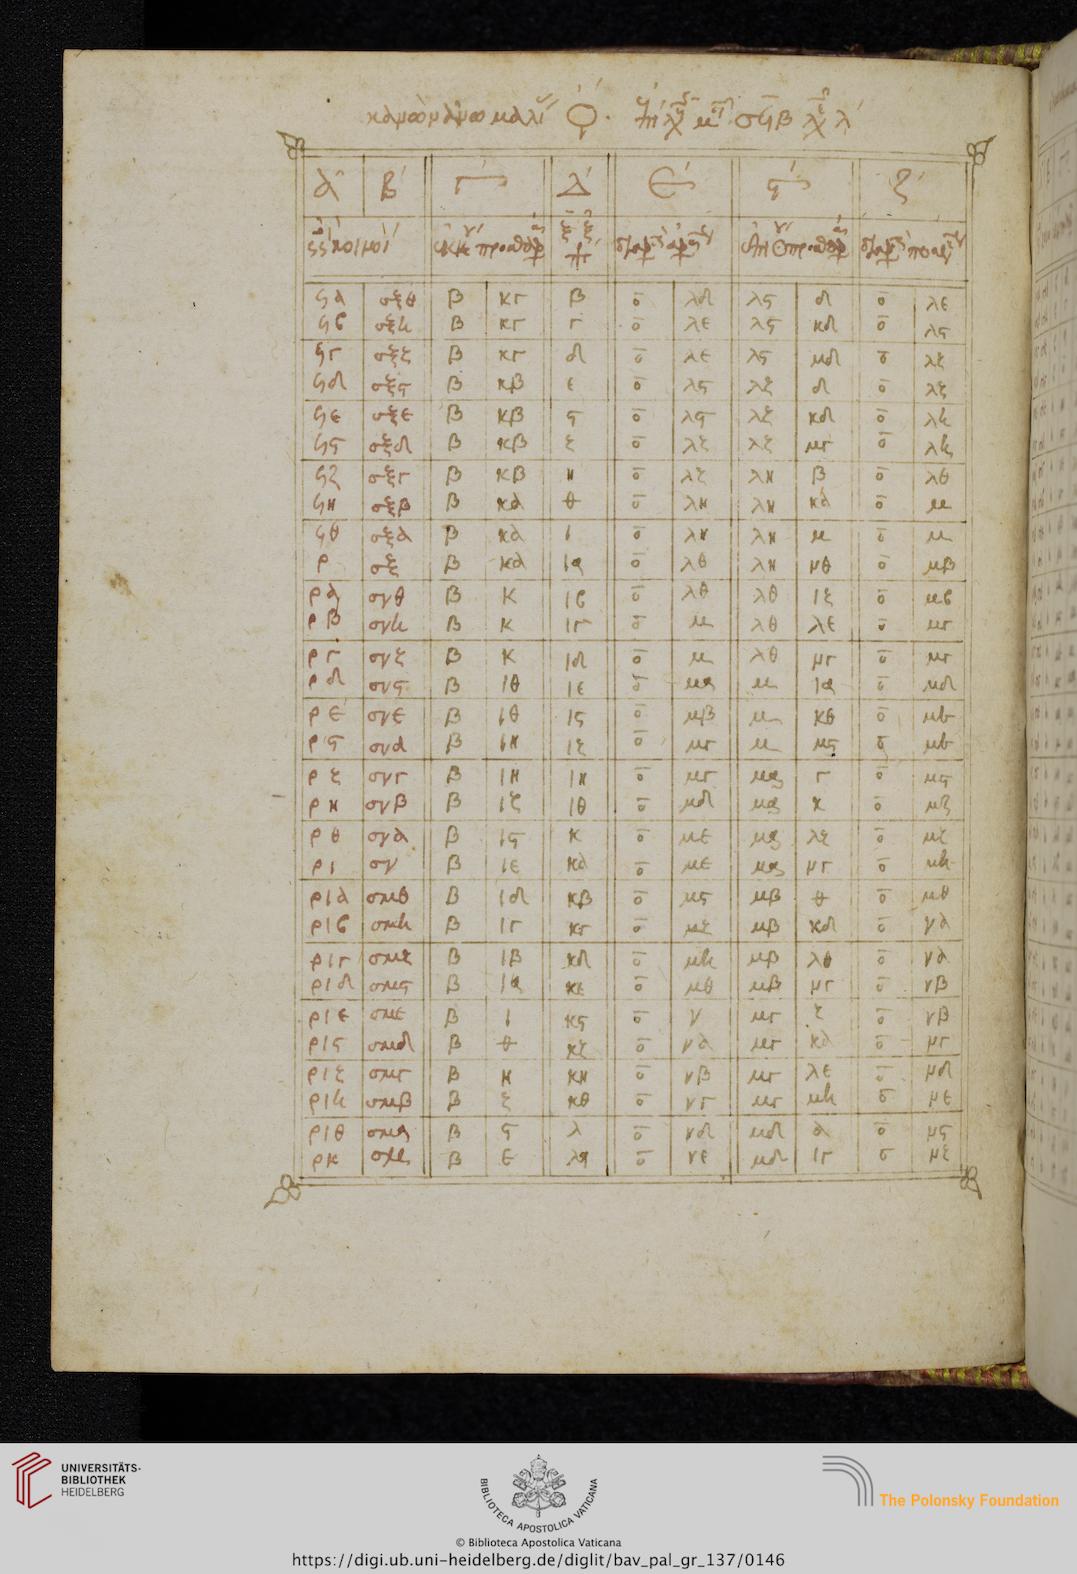 α β γ δ ε ϛ ζ
ϟα σξθ β κγ β ο λδ λϛ δ ο λε
ϟβ σξη β κγ γ ο λε λϛ κδ ο λϛ
ϟγ σξζ β κγ δ ο λε λϛ μδ ο λζ
ϟδ σξϛ β κβ ε ο λϛ λζ δ ο λζ
ϟε σξε β κβ ϛ ο λϛ λζ κδ ο λη
ϟϛ σξδ β κβ ζ ο λζ λζ μγ ο λη
ϟζ σξγ β κβ η ο λζ λη β ο λθ
ϟη σξβ β κα θ ο λη λη κα ο μ
ϟθ σξα β κα ι ο λη λη μ ο μ
ρ σξ β κα ια ο λθ λη μθ ο μβ
ρα σνθ β κ ιβ ο λθ λθ ιζ ο μβ
ρβ σνη β κ ιγ ο μ λθ λε ο μγ
ργ σνζ β κ ιδ ο μ λθ μγ ο μγ
ρδ σνϛ β ιθ ιε ο μα μ ια ο μδ
ρε σνε β ιθ ιϛ ο μβ μ κθ ο με
ρϛ σνδ β ιη ιζ ο μγ μ μϛ ο με
ρζ σνγ β ιη ιη ο μγ μα γ ο μϛ
ρη σνβ β ιζ ιθ ο μδ μα κ ο μζ
ρθ σνα β ιϛ κ ο με μα λζ ο μζ
ρι σν β ιε κα ο με μα μγ ο μη
ρια σμθ β ιδ κβ ο μϛ μβ θ ο μθ
ριβ σμη β ιγ κγ ο μζ μβ κδ ο να
ριγ σμζ β ιβ κδ ο μη μβ λθ ο να
ριδ σμϛ β ια κε ο μθ μβ μγ ο νβ
ριε σμε β ι κϛ ο ν μγ ζ ο νβ
ριϛ σμδ β θ κζ ο να μγ κα ο μγ
ριζ σμγ β η κη ο νβ μγ λε ο μδ
ριη σμβ β ζ κθ ο νγ μγ μη ο με
ριθ σμα β ϛ λ ο νδ μδ α ο μϛ
ρκ σμ β ε λα ο νε μδ ιγ ο μζ
UNIVERSITÄTS-
BIBLIOTHEK
HEIDELBERG
BIBLIOTECA APOSTOLICA VATICANA
The Polonsky Foundation
© Biblioteca Apostolica Vaticana
https://digi.ub.uni-heidelberg.de/diglit/bav_pal_gr_137/0146